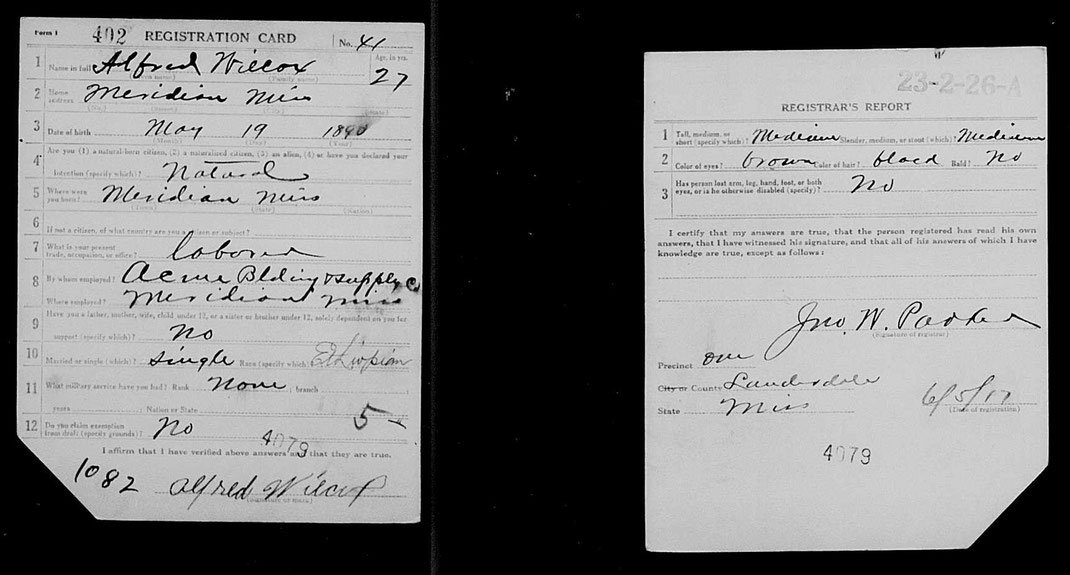 Form 1 402 REGISTRATION CARD No. 41
1 Name in full Alfred Wilcox Age, in yrs. 27
(Given name) (Family name)
2 Home address Meridian Miss
(No.) (Street) (State)
3 Date of birth May 19 1890
(Month) (Day) (Year)
4 Are you (1) a natural-born citizen, (2) a naturalized citizen, (3) an alien, (4) or have you declared your
intention (specify which)? Natural
5 Where were you born? Meridian Miss
(Town) (State) (Nation)
6 If not a citizen, of what country are you a citizen or subject?
7 What is your present trade, occupation, or office? laborer
8 By whom employed? Acme Blding & Supply Co
Where employed? Meridian Miss
9 Have you a father, mother, wife, child under 12, or a sister or brother under 12, solely dependent on you for
support (specify which)? No
10 Married or single (which)? single Race (specify which)? Ethiopian
11 What military service have you had? Rank None ; branch
years ; Nation or State 5
12 Do you claim exemption from draft (specify grounds)? No
4079
I affirm that I have verified above answers and that they are true.
1082 Alfred Wilcox
(Signature or mark)
23-2-26-A
REGISTRAR'S REPORT
1 Tall, medium, or short (specify which)? Medium Slender, medium, or stout (which)? Medium
2 Color of eyes? brown Color of hair? black Bald? No
3 Has person lost arm, leg, hand, foot, or both
eyes, or is he otherwise disabled (specify)? No
I certify that my answers are true, that the person registered has read his own
answers, that I have witnessed his signature, and that all of his answers of which I have
knowledge are true, except as follows:
Jno. W. Parker
(Signature of registrar)
Precinct one
City or County Lauderdale
State Miss 6/5/17
(Date of registration)
4079